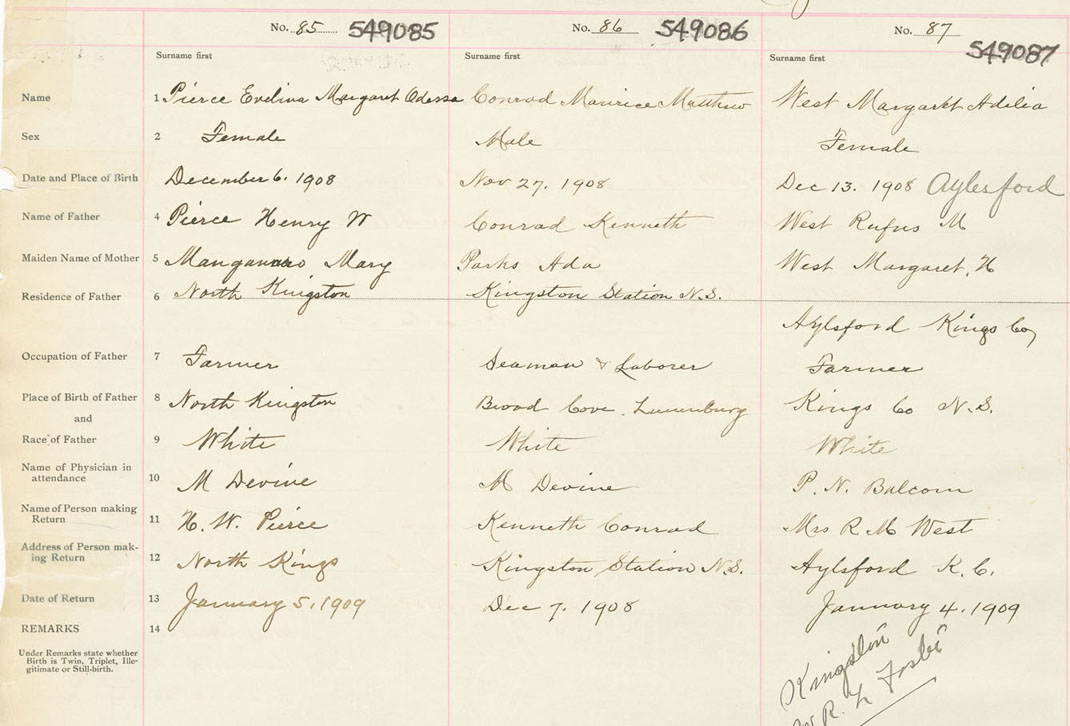 No. 85 549085 No. 86 549086 No. 87 549087
Surname first Surname first Surname first
Name 1 Pierce Evelina Margaret Odessa Conrad Maurice Matthew West Margaret Adelia
Sex 2 Female Male Female
Date and Place of Birth December 6. 1908 Nov 27. 1908 Dec 13. 1908 Aylesford
Name of Father 4 Pierce Henry W Conrad Kenneth West Rufus M
Maiden Name of Mother 5 Mary Parks Ada West Margaret. H
Residence of Father 6 North Kingston Kingston Station N.S.
Aylsford Kings Co,
Occupation of Father 7 Farmer Seaman & Laborer Farmer
Place of Birth of Father 8 North Kingston Broad Cove. Lunenburg Kings Co N.S.
and
Race of Father 9 White White White
Name of Physician in
attendance 10 M Devine M Devine P. N. Balcom
Name of Person making
Return 11 H. W. Pierce Kenneth Conrad Mrs R M West
Address of Person mak-
ing Return 12 North Kings Kingston Station N.S. Aylsford K. C.
Date of Return 13 January 5. 1909 Dec 7. 1908 January 4. 1909
REMARKS 14
Under Remarks state whether
Birth is Twin, Triplet, Ille-
gitimate or Still-birth.
Kingston
R.